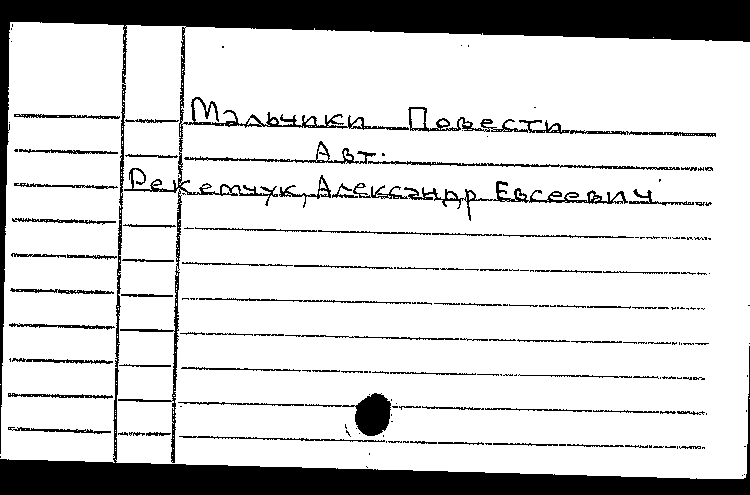 Мальчики Повести
Авт.
Рекемчук, Александр Евсеевич